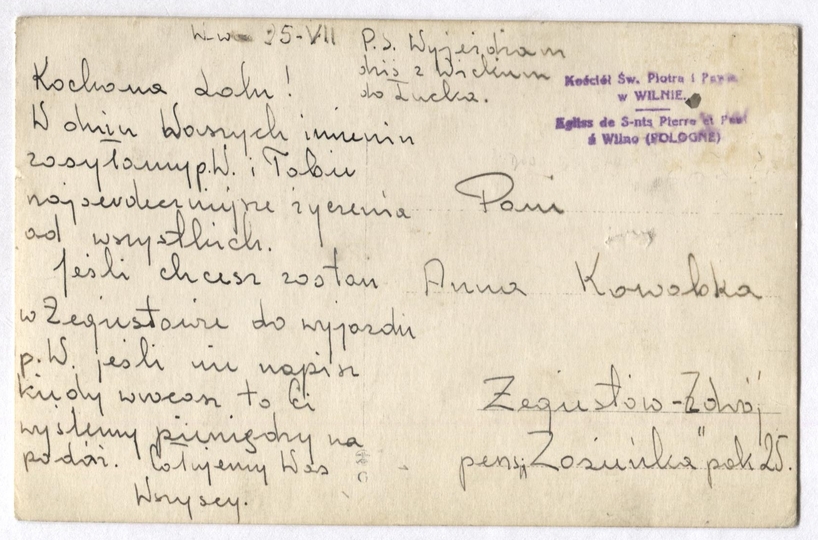 W-wa 25-VII
P.S. Wyjeżdżam
dziś z Wickiem
do Łucka.
Kochana Lalu!
W dniu Waszych imienin
zasyłamy p.W. i Tobie
najserdeczniejsze życzenia
od wszystkich.
Jeśli chcesz zostań
w Żegiestowie do wyjazdu
p.W. jeśli nie napisz
kiedy wracasz to Ci
wyślemy pieniędzy na
podróż. Całujemy Was
Wszyscy.
Kościół Św. Piotra i Pawła
w WILNIE.
Eglise de S-nts Pierre et Paul
á Wilno (POLOGNE)
Pani
Anna Kowalska
Żegiestów-Zdrój
pens. „Zosieńka" pok 25.